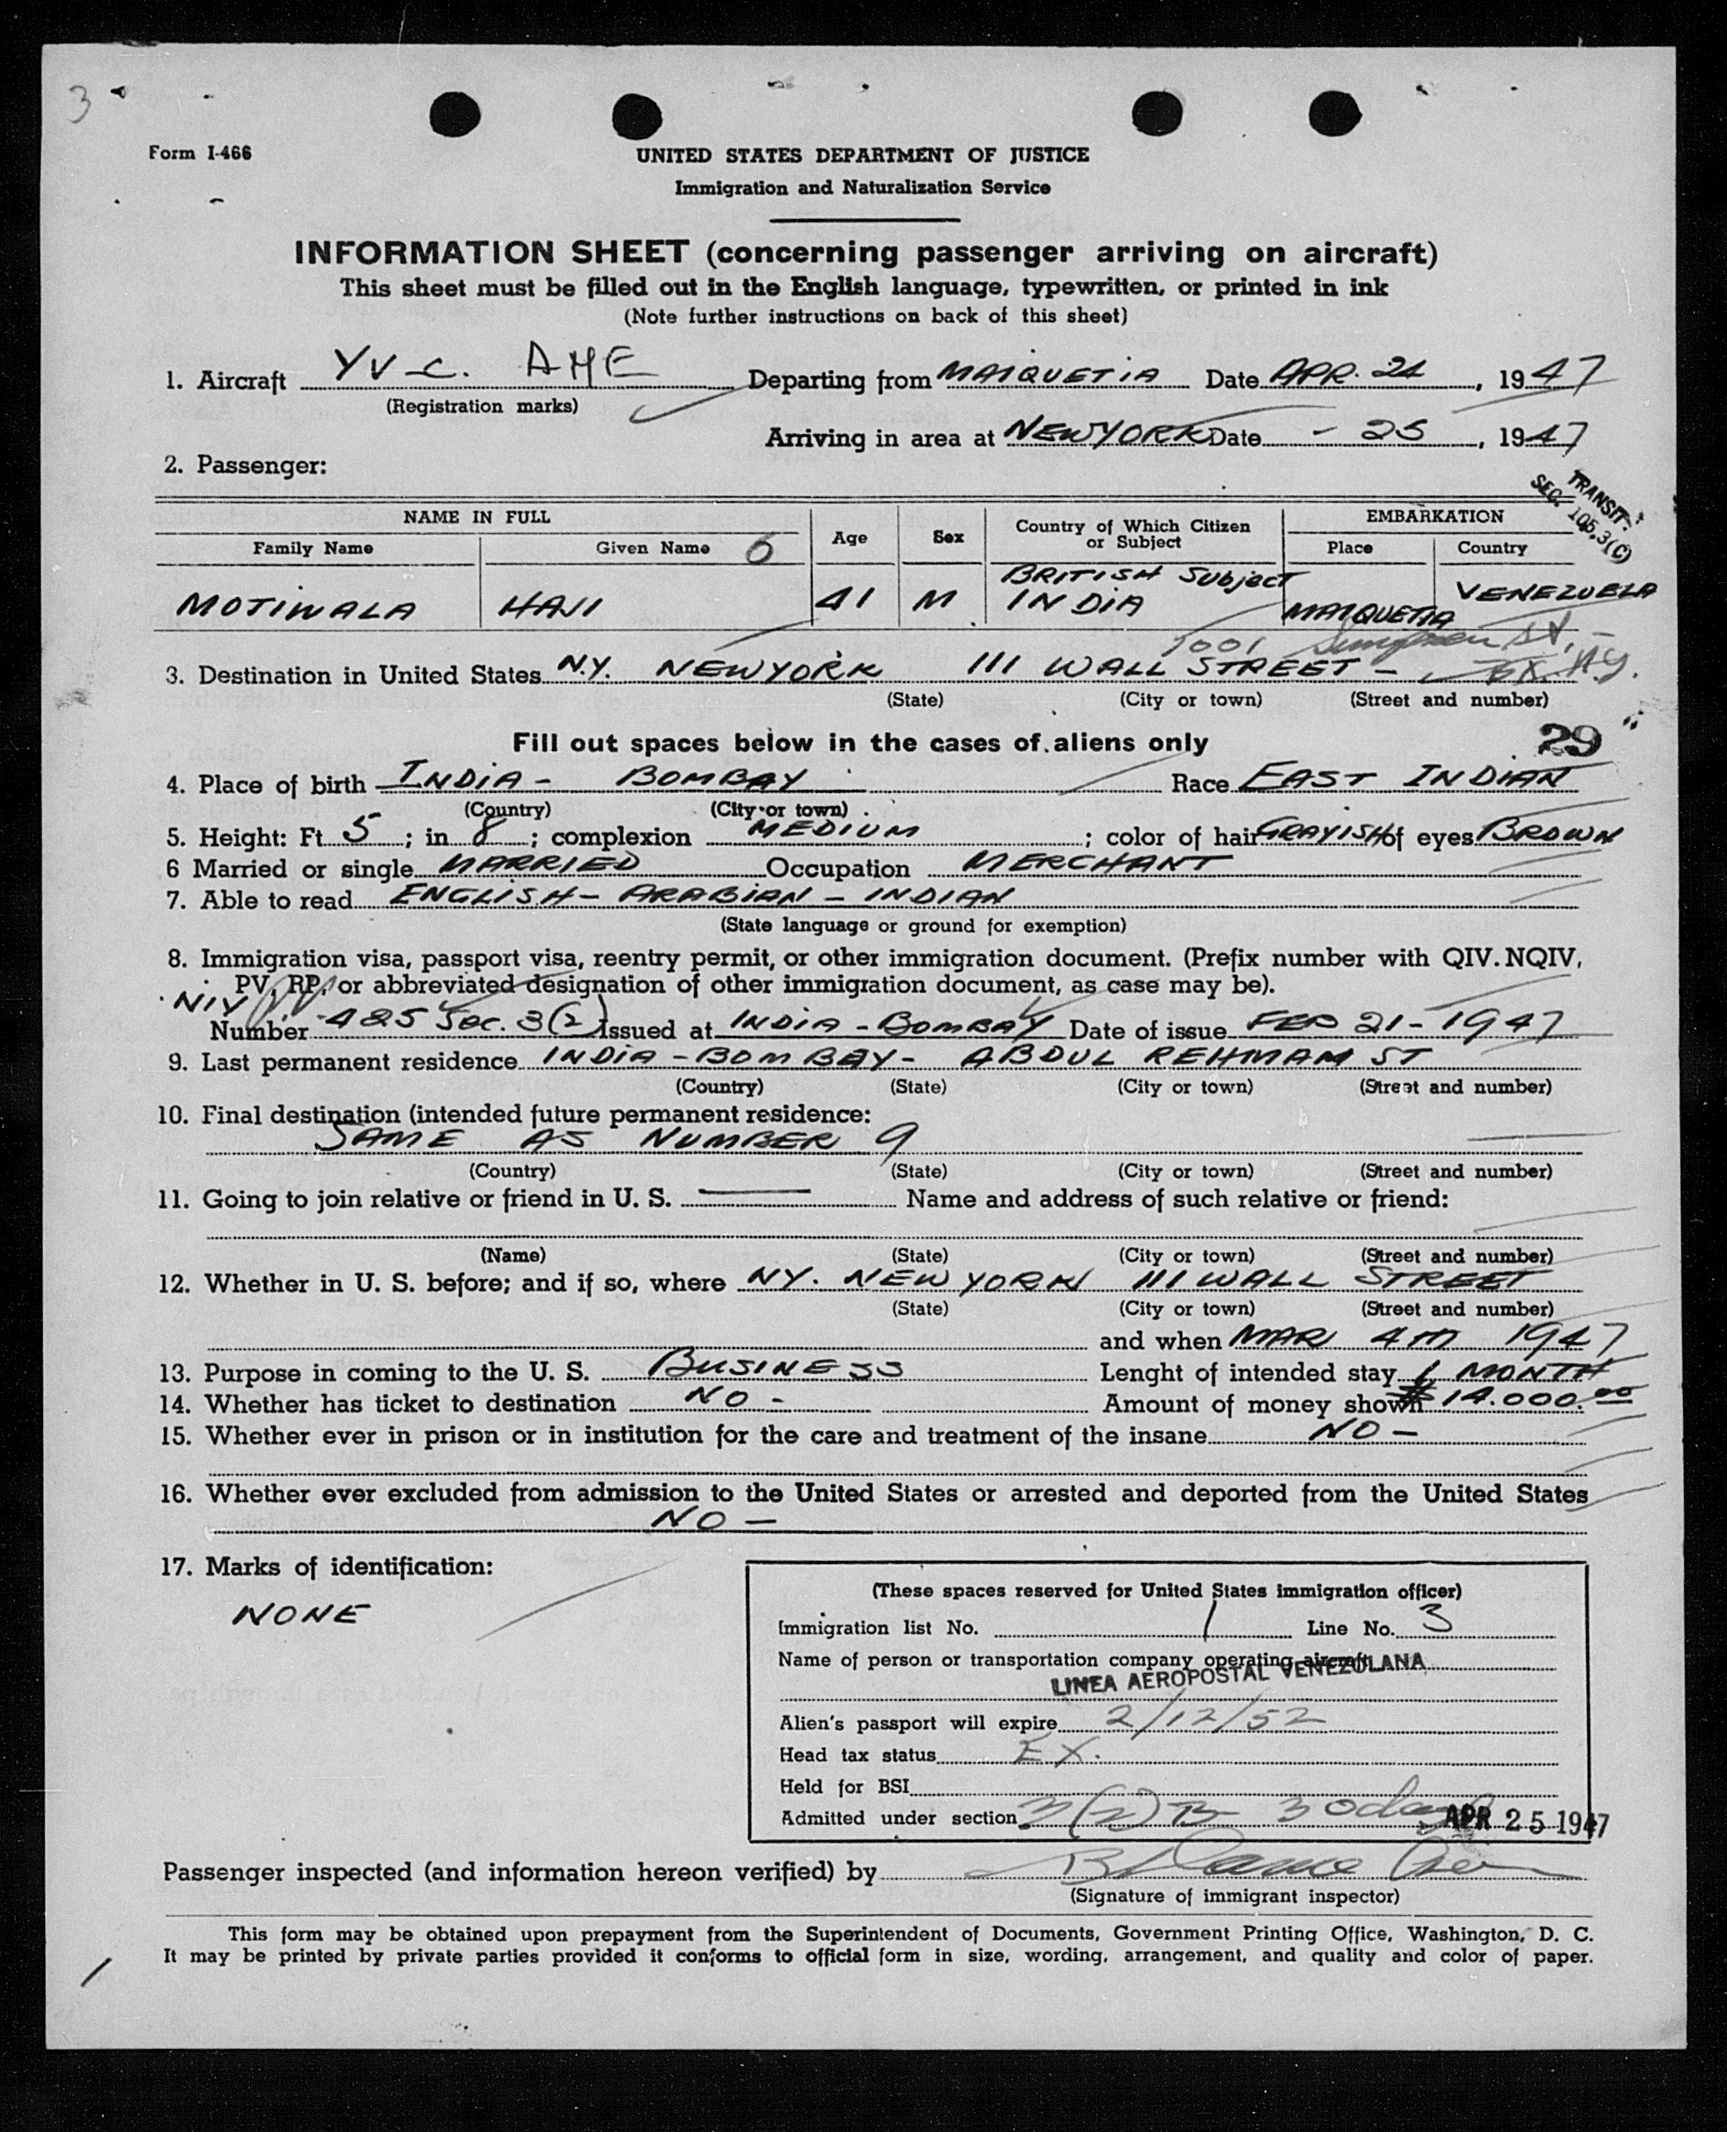 3
Form I-466
UNITED STATES DEPARTMENT OF JUSTICE
Immigration and Naturalization Service
INFORMATION SHEET (concerning passenger arriving on aircraft)
This sheet must be filled out in the English language, typewritten, or printed in ink
(Note further instructions on back of this sheet)
1. Aircraft YV-C. AME Departing from MAIQUETIA Date APR. 24, 1947
(Registration marks)
Arriving in area at NEW YORK Date - 25, 1947
2. Passenger:
TRANSIT:
SEC. 105.3(C)
NAME IN FULL Age Sex Country of Which Citizen or Subject EMBARKATION
Family Name Given Name 6 Place Country
MOTIWALA HAJI 41 M BRITISH SUBJECT INDIA MAIQUETIA VENEZUELA
1001 St,
3. Destination in United States N.Y. NEW YORK 111 WALL STREET - BX. N.Y.
(State) (City or town) (Street and number)
Fill out spaces below in the cases of aliens only 29
4. Place of birth INDIA - BOMBAY Race EAST INDIAN
(Country) (City or town)
5. Height: Ft. 5; in 8; complexion MEDIUM; color of hair GRAYISH of eyes BROWN
6 Married or single MARRIED Occupation MERCHANT
7. Able to read ENGLISH - ARABIAN - INDIAN
(State language or ground for exemption)
8. Immigration visa, passport visa, reentry permit, or other immigration document. (Prefix number with QIV. NQIV,
PV, RP, or abbreviated designation of other immigration document, as case may be).
NIV PV
Number 485 Sec. 3(2) Issued at INDIA - BOMBAY Date of issue FEB 21 - 1947
9. Last permanent residence INDIA - BOMBAY - ABDUL REHMAM ST
(Country) (State) (City or town) (Street and number)
10. Final destination (intended future permanent residence:
SAME AS NUMBER 9
(Country) (State) (City or town) (Street and number)
11. Going to join relative or friend in U. S. Name and address of such relative or friend:
(Name) (State) (City or town) (Street and number)
12. Whether in U. S. before; and if so, where NY. NEW YORK 111 WALL STREET
(State) (City or town) (Street and number)
and when MAR 4TH 1947
13. Purpose in coming to the U. S. BUSINESS Lenght of intended stay 1 MONTH
14. Whether has ticket to destination NO - Amount of money shown $14.000.00
15. Whether ever in prison or in institution for the care and treatment of the insane NO -
16. Whether ever excluded from admission to the United States or arrested and deported from the United States
NO -
17. Marks of identification:
NONE
(These spaces reserved for United States immigration officer)
Immigration list No. 1 Line No. 3
Name of person or transportation company operating aircraft
LINEA AEROPOSTAL VENEZOLANA
Alien's passport will expire 2/12/52
Head tax status EX.
Held for BSI
Admitted under section 3(2) B 30 days APR 25 1947
Passenger inspected (and information hereon verified) by
(Signature of immigrant inspector)
This form may be obtained upon prepayment from the Superintendent of Documents, Government Printing Office, Washington, D. C.
It may be printed by private parties provided it conforms to official form in size, wording, arrangement, and quality and color of paper.